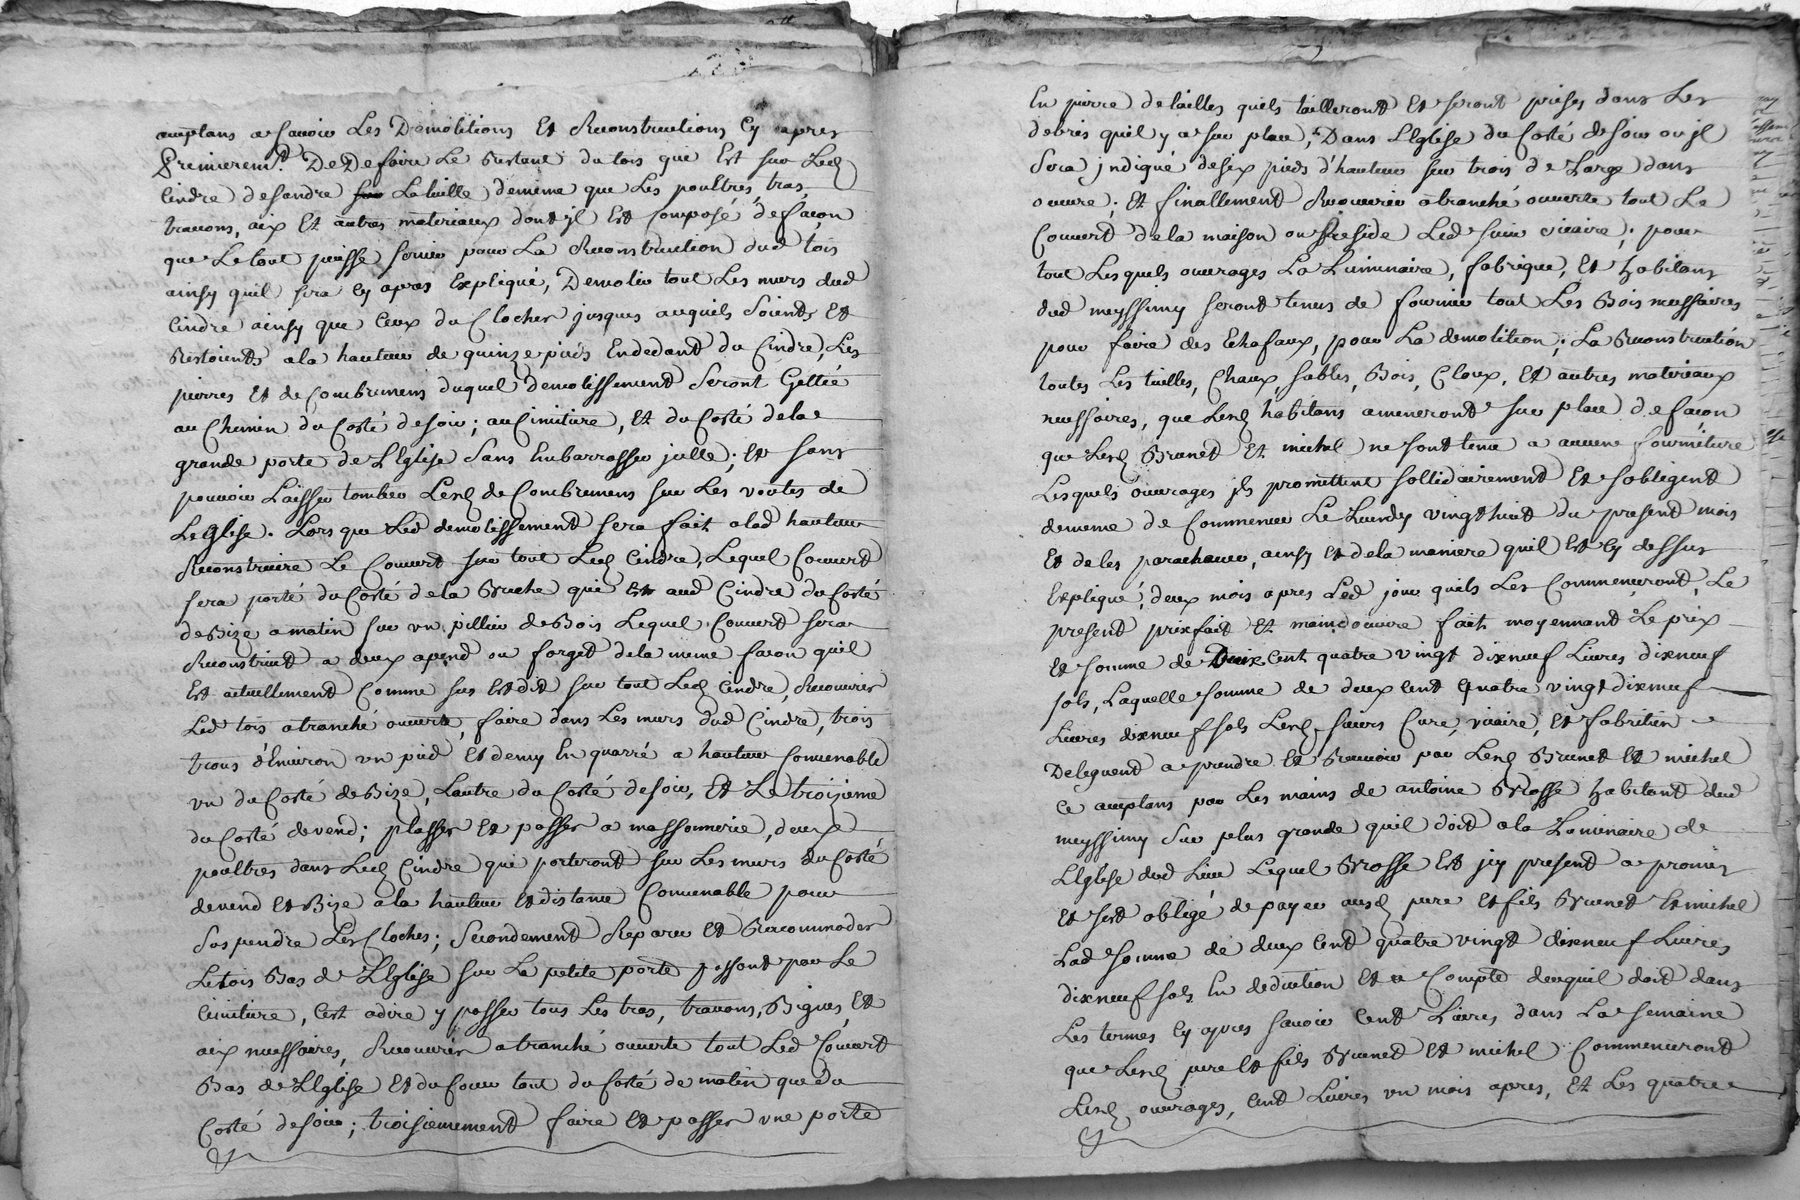 acceptans a scavoir Les Demolitions Et Reconstructions Cy apres
Premierem.t De Defaire Le Restant du tois que Est sur Led.
Cindre descendre La tuille demême que Les poultres tras,
travons, aix Et autres materiaux dont jl Est Composé de façon
que Le tout puisse servir pour La Reconstruction dud tois
ainsy quil sera Cy apres Expliqué, Demolir tout Les murs dud
Cindre ainsy que Ceux du Clocher jusques auquels soients Et
Restoients a la hauteur de quinze pieds Endedant du Cindre, Les
pierres Et decombremens duquel demolissement Seront Gettée
au Chemin du Costé de soir; au Cimitiere, Et du Costé de la
grande porte de LEglise Sans Embarrasser jcelle; Et sans
pouvoir Laisser tomber Lesd. deCombremens sur Les voutes de
LeGlise. Lors que Led demolissement sera fait alad hauteur
Reconstruire Le Couvert sur tout Led. Cindre, Lequel Couvert
sera porté du Costé de la Bruche qui Est aud Cindre du Costé
de Bize a matin sur vn pillier de Bois Lequel Couvert sera
Reconstruit a deux apend ou forget de la meme facon quil
Est actuellement Comme sus Est dit sur tout Led. Cindre, Recouvrir
Led tois a tranché ouverte, faire dans Les murs dud Cindre, trois
trous d'Environ vn pied Et demy En quarré a hauteur Convenable
vn du Costé de Bize, Lautre du Costé de soir, Et Le troisieme
du Costé de vend; plasser Et posser a massonnerie, deux
poultres dans Led. Cindre qui porteront sur Les murs du Costé
de vend Et Bize a la hauteur Et distance Convenable pour
Sospendre Les Cloches; Secondement Reparer Et Racommoder
Le tois Bas de LEglise sur La petite porte possant par Le
Cimitiere, Cest adire y posser tous Les tras, travons, Bignes, Et
aix necessaires, Recouvrir a tranché ouverte tout Led Couvert
Bas de LEglise Et du Coeur tant du Costé de matin que du
Costé de soir; troisiemement faire Et posser vne porte
En pierre de tailles quils tailleront Et seront prises dans Les
debris quil y a sur place, Dans LEglise du Costé de soir ou jl
Sera jndiqué de six pieds d'hauteur sur trois de Large dans
oeuvre; Et finallement Recouvrir a tranché ouverte tout Le
Couvert de la maison ou Reside Led sieur vicaire; pour
tout Lesquels ouvrages La Luminaire, fabrique, Et habitans
dud meyssimy seront tenus de fournir tout Les Bois necessaires
pour faire des Echafaux, pour La demolition; La Reconstruction
toutes Les tuilles, Chaux, sables, Bois, Cloux, Et autres materiaux
necessaires, que Lesd. habitans ameneront sur place de façon
que Lesd. Brunet Et michel ne sont tenu a aucune fourniture
Lesquels ouvrages jls promettent sollidairement Et sobligent
dememe de Commencer Le Lundy vingt huit du present mois
Et de les parachever, ainsy Et de la maniere quil Est Cy dessus
Expliqué, deux mois apres Led jour quils Les Commenceront, Le
present prixfait Et maindoeuvre fait moyennant Le prix
Et somme de Deux Cent quatre vingt dixneuf Livres dixneuf
sols, Laquelle somme de deux Cent quatre vingt dixneuf
Livres dixneuf sols Lesd. sieurs Cure, vicaire, Et fabricien
Deleguent a prendre Et Recevoir par Lesd. Brunet Et michel
Ce acceptans par Les mains de antoine Brosse habitant dud
meyssimy Sur plus grande quil doit a la Luminaire de
LEglise dud Lieu Lequel Brosse Est jcy present a promis
Et sest obligé de payer ausd. pere Et fils Brunet Et michel
Lad somme de deux Cent quatre vingt dixneuf Livres
dixneuf sols En deduction Et a Compte de ce quil doit dans
Les termes Cy apres scavoir Cent Livres dans La semaine
que Lesd. pere Et fils Brunet Et michel Commenceront
Lesd. ouvrages, Cent Livres vn mois apres, Et Les quatre